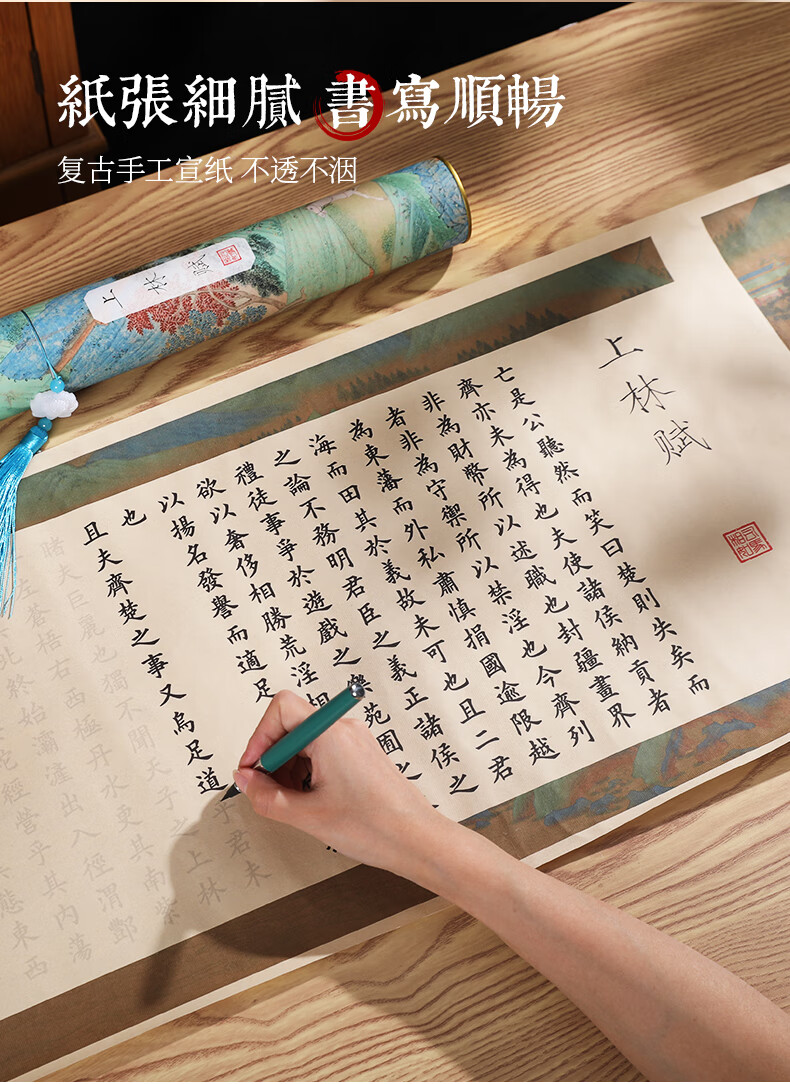 紙張細膩 書寫順暢
复古手工宣纸 不透不洇
上林赋
上林赋
司馬相如
亡是公聽然而笑曰楚則失矣而
齊亦未為得也夫使諸侯納貢者
非為財幣所以述職也封疆畫界
者非為守禦所以禁淫也今齊列
為東藩而外私肅慎捐國逾限越
海而田其於義故未可也且二君
之論不務明君臣之義正諸侯之
禮徒事爭於遊戲之樂苑囿之
欲以奢侈相勝荒淫相
以揚名發譽而適足
也
且夫齊楚之事又烏足道乎君未
睹夫巨麗也獨不聞天子之上林
左蒼梧右西極丹水更其南紫
北終始灞滻出入徑渭酆
蛇經營乎其內蕩
態東西